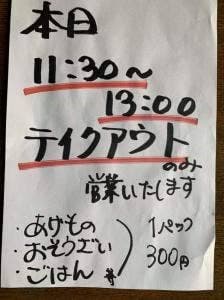 本日
11:30〜
13:00
テイクアウト
のみ
営業いたします
・あげもの
・おそうざい
・ごはん 等
1パック
300円